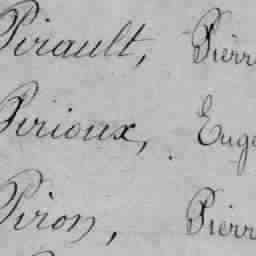 Pirault, Pierr
Perioux, Euge
Piron, Pierr